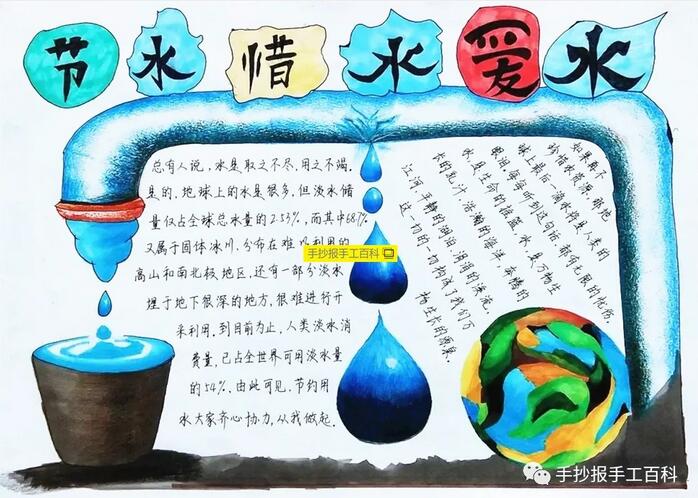 节水惜水爱水
总有人说,水是取之不尽,用之不竭,
是的,地球上的水是很多,但淡水储
量仅占全球总水量的2.53%,而其中68.7%
又属于固体冰川,分布在难以利用的
高山和南北极地区,还有一部分淡水
埋于地下很深的地方,很难进行开
采利用,到目前为止,人类淡水消
费量,已占全世界可用淡水量
的54%,由此可见,节约用
水大家齐心协力,从我做起。
如果再不
珍惜水资源,那地
球上最后一滴水将是人类的
眼泪每每听到这句话都有无限的忧伤。
水,是生命的摇篮水,是万物生
长的乳汁浩瀚的海洋,奔腾的
江河平静的湖泊涓涓的溪流,
这一切的一切构成了我们万
物生长的源泉。
手抄报手工百科
手抄报手工百科